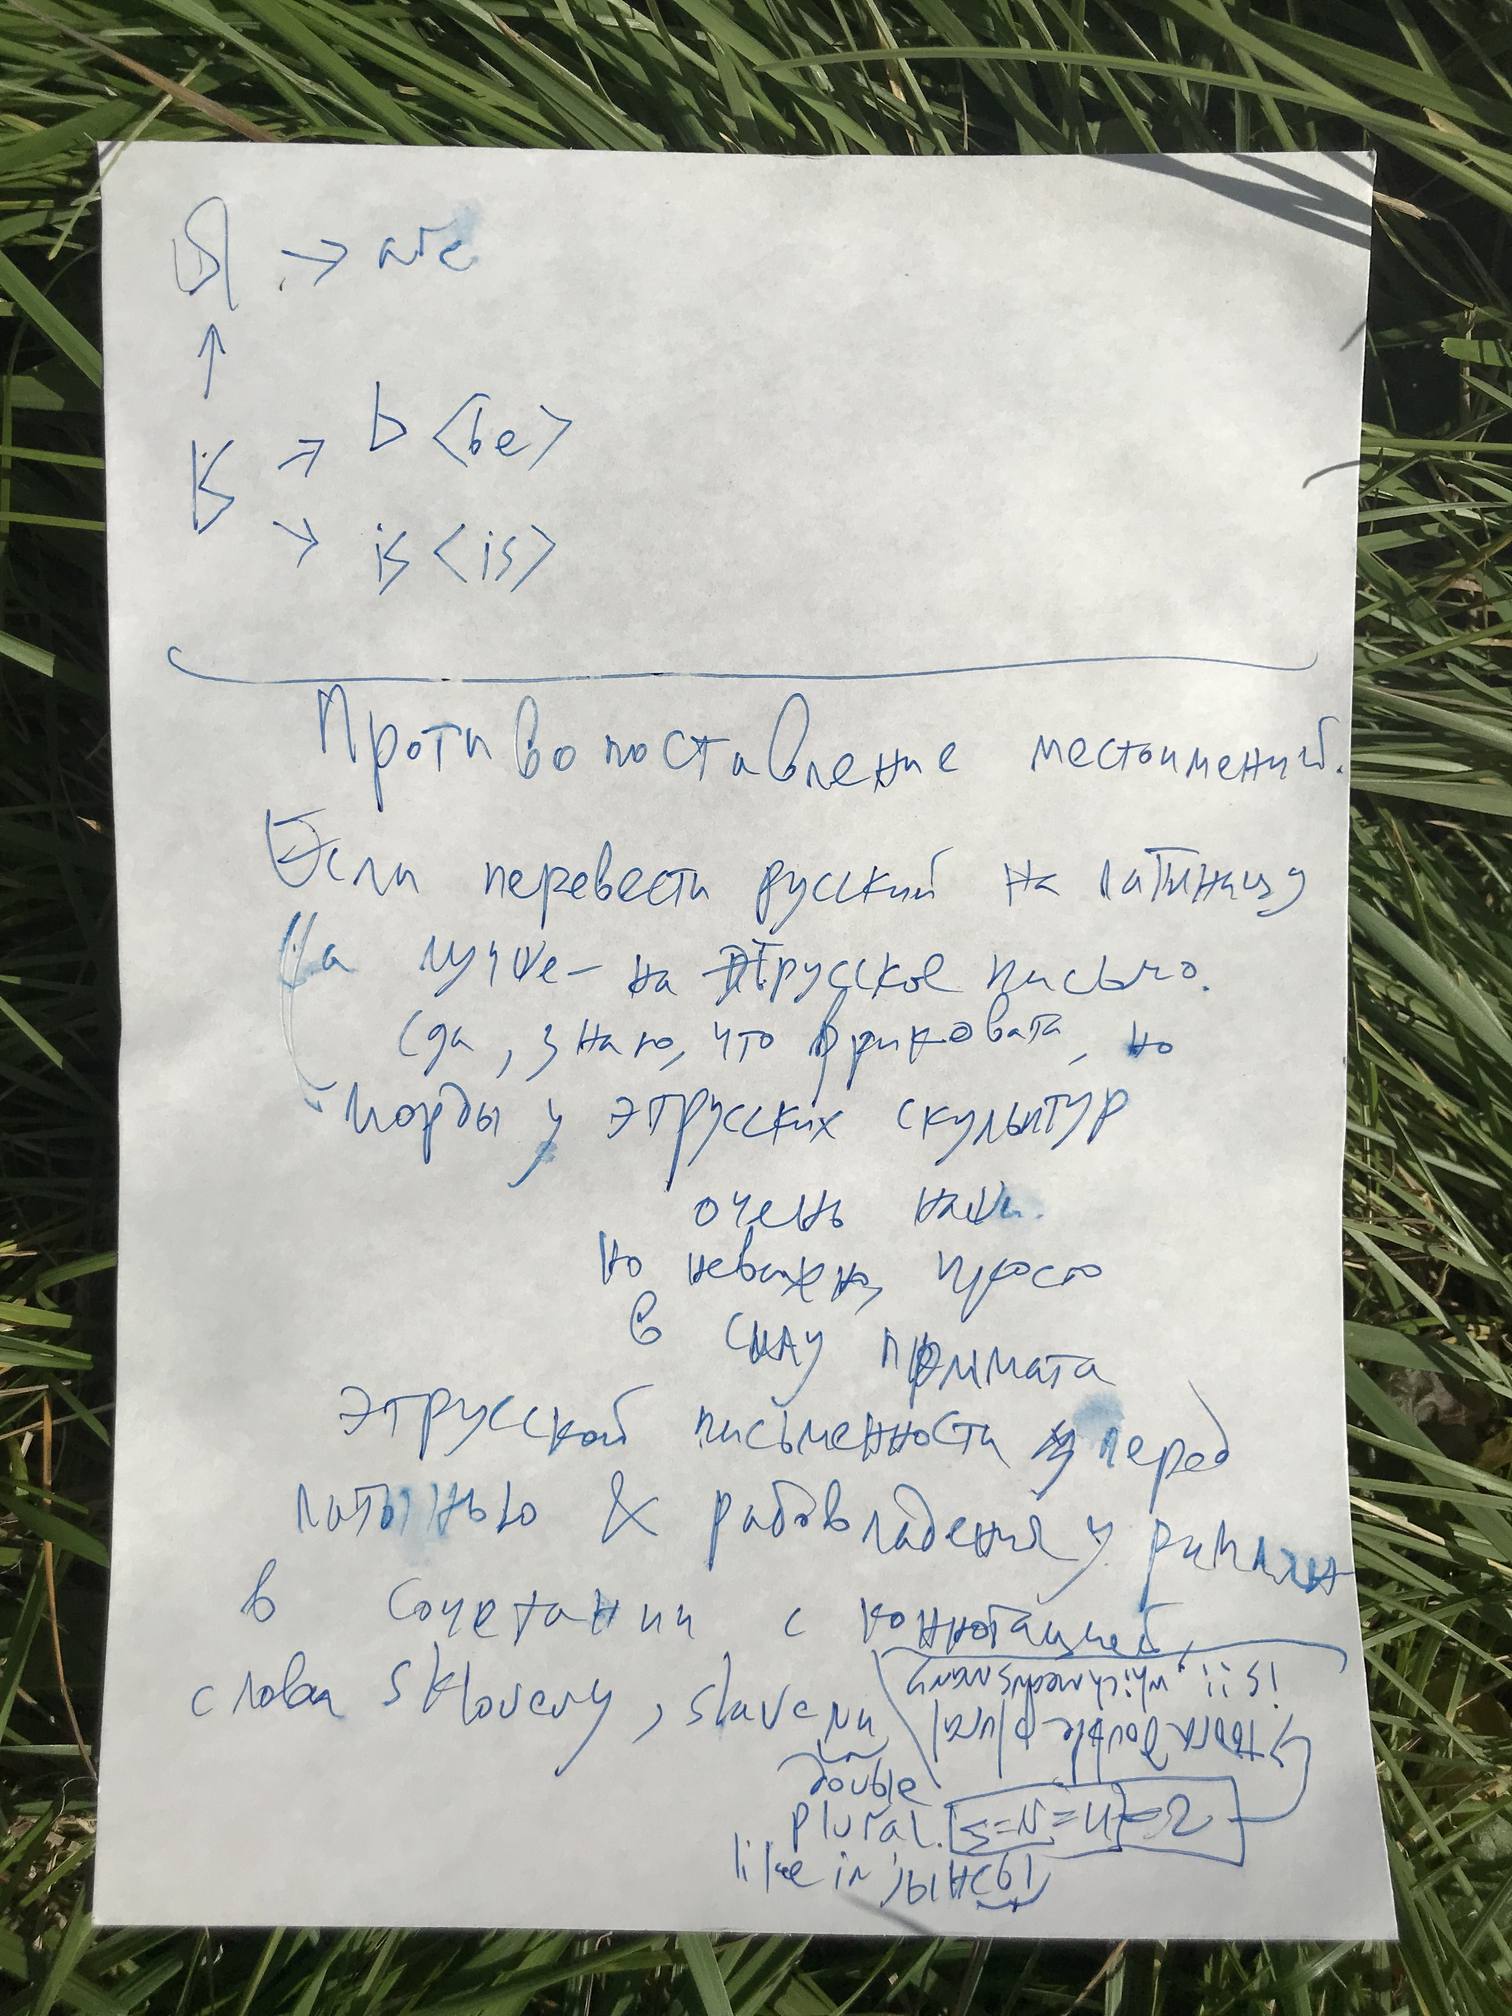 Я → are
↑
ɮ → b <be>
→ is <is>
Противопоставление местоимений.
Если перевести русский на латиницу
(а лучше – на этрусское письмо.
(да, знаю, что фриковата, но
морды у этрусских скульптур
очень наши.
но неважно, просто
в силу примата
этрусской письменности перед
латынью & рабовладения у римлян
в сочетании с коннотацией,
слова sklaveny, slaveни
double
plural.
like in
s=N=И=2
→ double plural
is ii, which means many